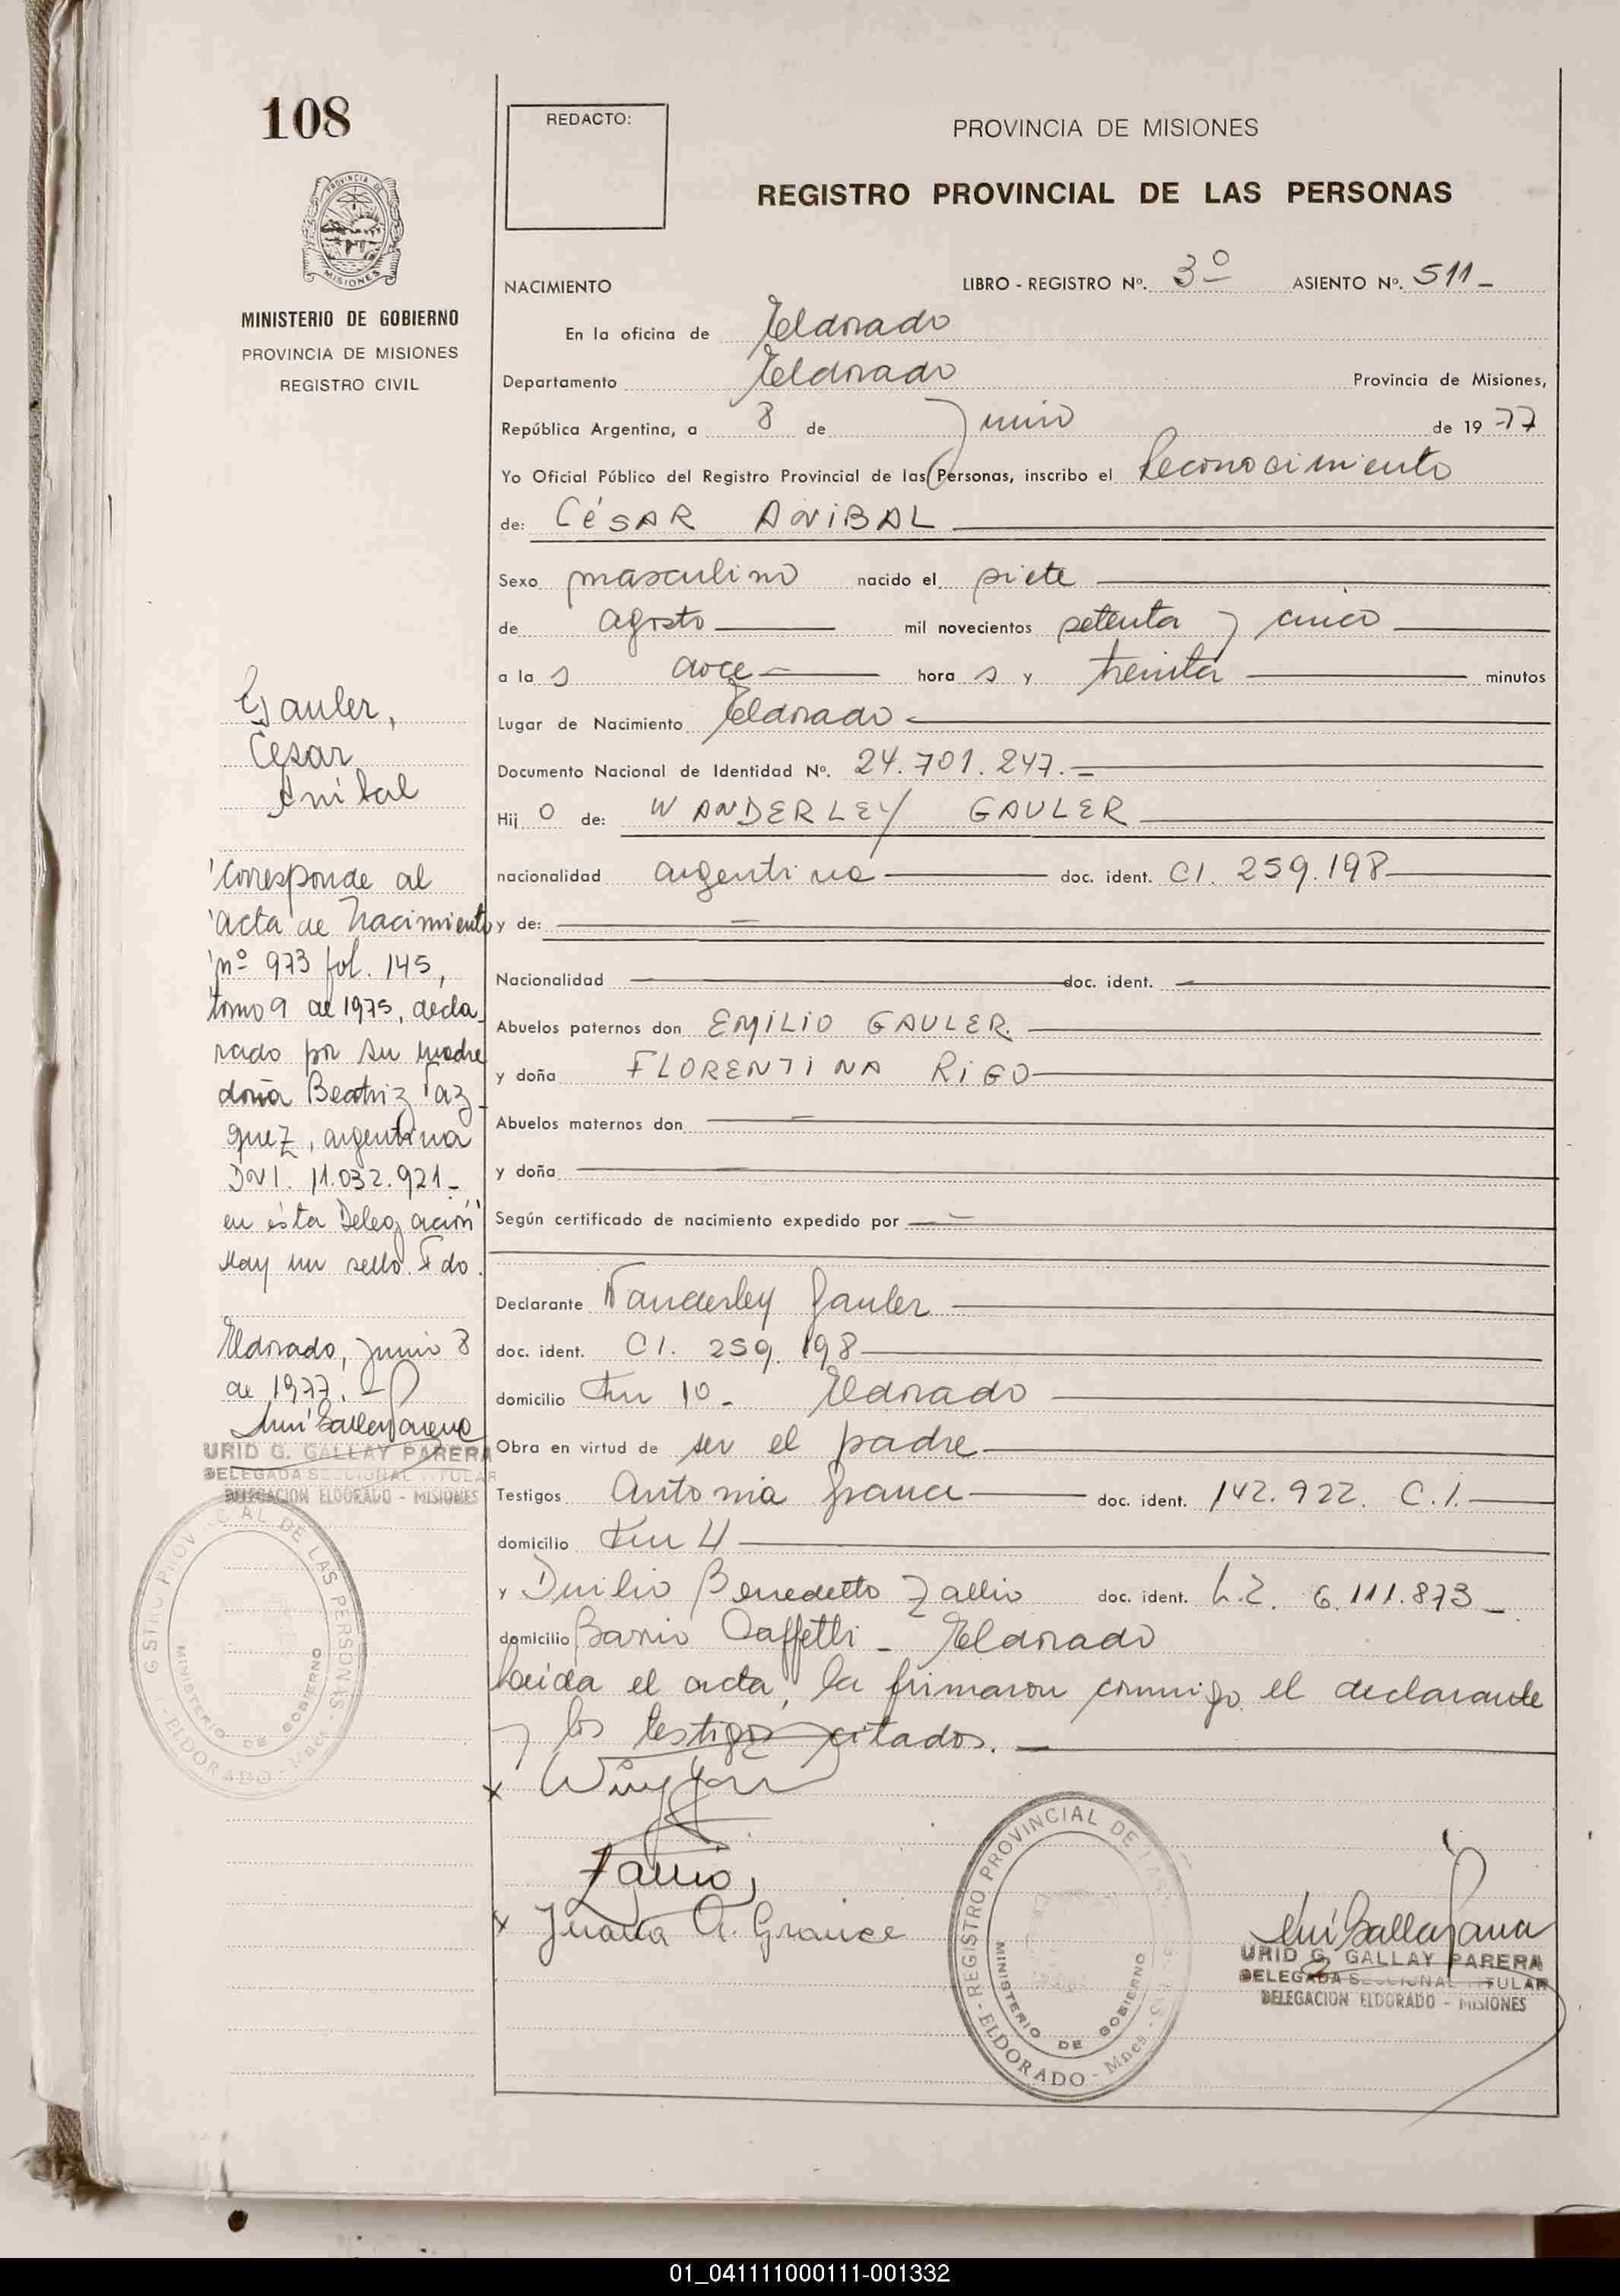 108
PROVINCIA DE
MISIONES
MINISTERIO DE GOBIERNO
PROVINCIA DE MISIONES
REGISTRO CIVIL
Gauler,
César
Anibal
Corresponde al
acta de Nacimiento
nº 973 fol. 145,
tomo 9 de 1975, decla-
rado por su madre
doña Beatriz Vaz-
quez, argentina
DNI. 11.032.921-
en ésta Delegación
Hay un sello. Fdo.
Eldorado, Junio 8
de 1977.
URID G. GALLAY PARERA
DELEGADA SECCIONAL TITULAR
DELEGACION ELDORADO - MISIONES
REGISTRO PROVINCIAL DE LAS PERSONAS - ELDORADO - Mnes.
MINISTERIO DE GOBIERNO
REDACTO:
PROVINCIA DE MISIONES
REGISTRO PROVINCIAL DE LAS PERSONAS
NACIMIENTO LIBRO - REGISTRO Nº. 3º ASIENTO Nº. 511-
En la oficina de Eldorado
Departamento Eldorado Provincia de Misiones,
República Argentina, a 8 de Junio de 1977
Yo Oficial Público del Registro Provincial de las Personas, inscribo el Reconocimiento
de: CéSAR ANiBAL
Sexo masculino nacido el siete
de agosto mil novecientos setenta y cinco
a las doce horas y treinta minutos
Lugar de Nacimiento Eldorado
Documento Nacional de Identidad Nº. 24.701.247.-
Hijo de: WANDERLEY GAULER
nacionalidad argentina doc. ident. CI. 259.198
y de:
Nacionalidad doc. ident.
Abuelos paternos don EMILIO GAULER.
y doña FLORENTINA RiGO
Abuelos maternos don
y doña
Según certificado de nacimiento expedido por
Declarante Wanderley Gauler
doc. ident. CI. 259.198
domicilio Km 10- Eldorado
Obra en virtud de ser el padre
Testigos Antonia doc. ident. 142.922. C.I.
domicilio Km 4
y Duilio Benedetto Zallio doc. ident. L.E. 6.111.873-
domicilio Barrio - Eldorado
Leída el acta, la firmaron conmigo, el declarante
y los testigos citados.
x
Zallio
x Juana A. Grance
REGISTRO PROVINCIAL DE LAS PERSONAS - ELDORADO - Mnes.
MINISTERIO DE GOBIERNO
URID G. GALLAY PARERA
DELEGADA SECCIONAL TITULAR
DELEGACION ELDORADO - MISIONES
01_041111000111-001332